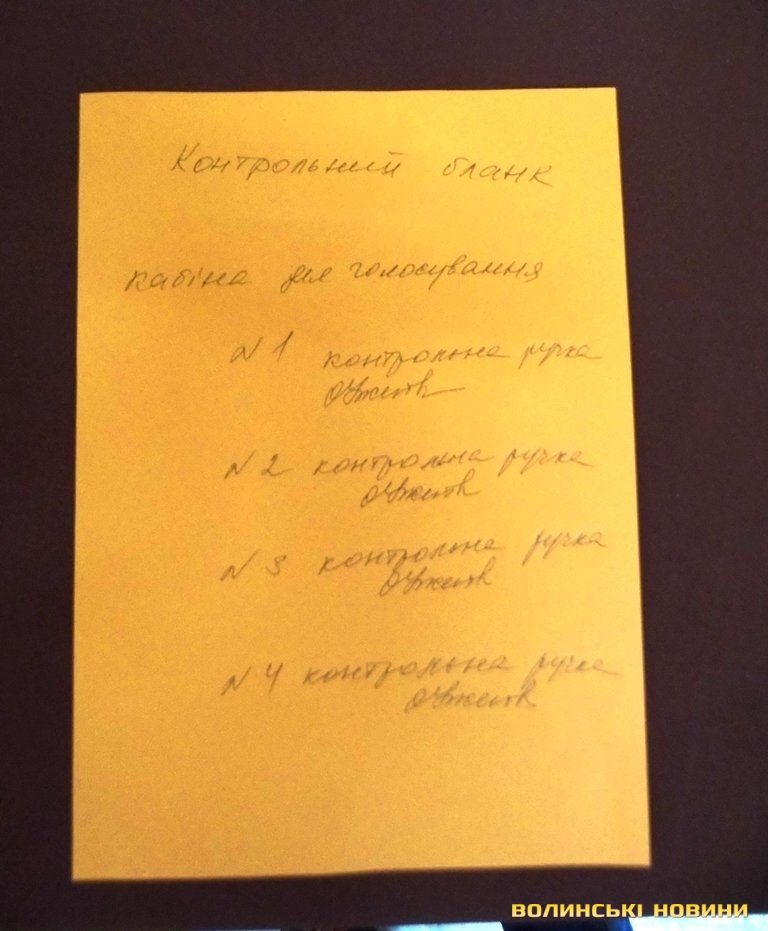 Контрольний бланк
кабіна для голосування
N 1 контрольна ручка
N 2 контрольна ручка
N 3 контрольна ручка
N 4 контрольна ручка
ВОЛИНСЬКІ НОВИНИ